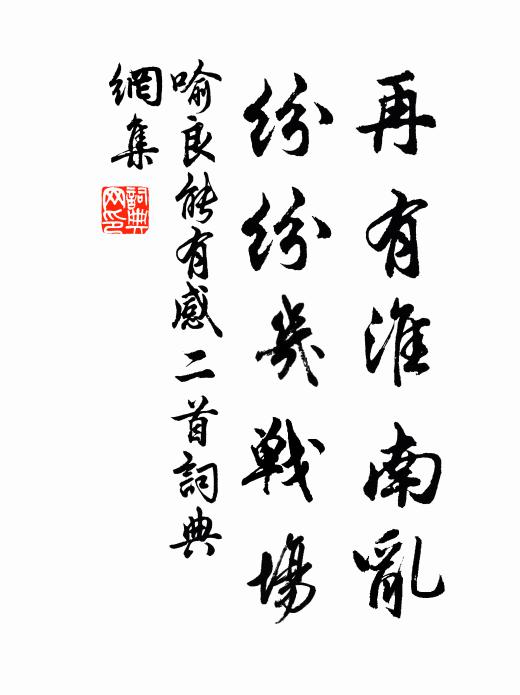 再有淮南亂
紛紛幾戰場
喻良能有感二首詞典
網集
詞典網印